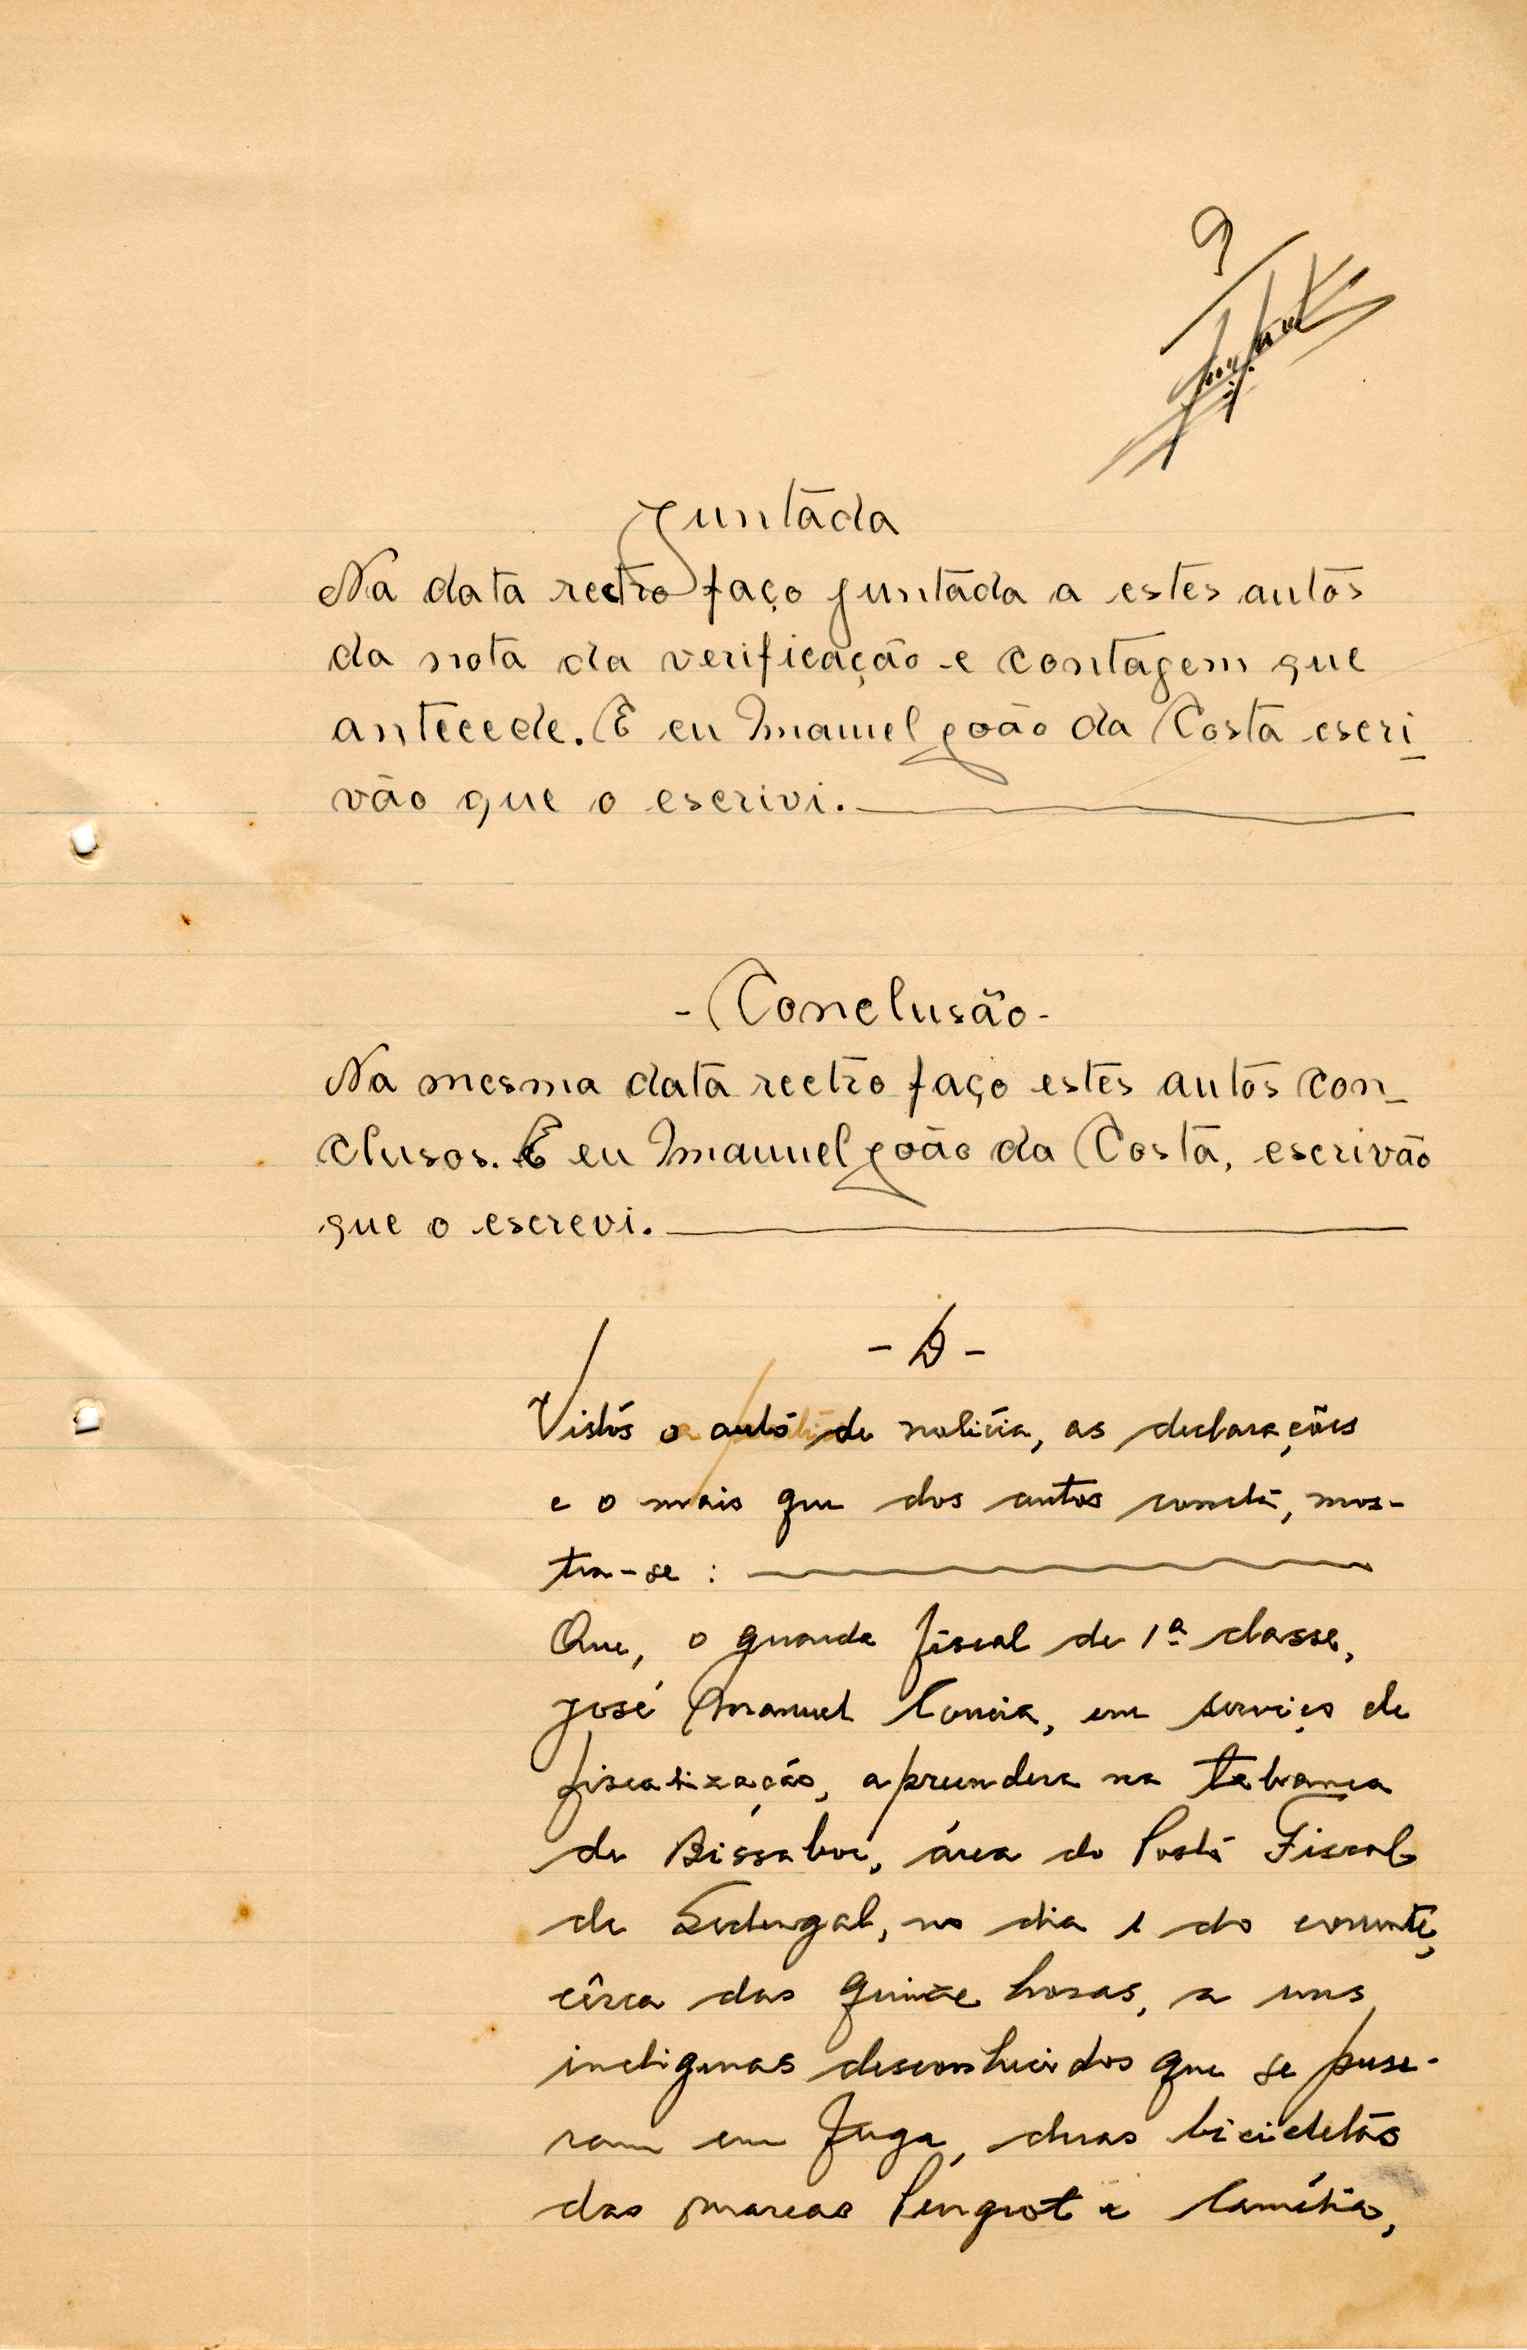 9
Juntada
Na data rectro faço juntada a estes autos
da nota da verificação e contagem que
antecede. E eu Manuel João da Costa escri_
vão que o escrivi.
- Conclusão -
Na mesma data rectro faço estes autos con_
clusos. E eu Manuel João da Costa, escrivão
que o escrevi.
- D -
Vistos o auto de notícia, as declarações
e o mais que dos autos consta, mos-
tra-se :
Que, o guarda fiscal de 1ª classe,
José Manuel Correia, em serviço de
fiscalização, apreendera na tabanca
de Bissabor, área do Posto Fiscal
de Sedengal, no dia 1 do corrente,
cêrca das quinze horas, a uns
indigenas desconhecidos que se puse-
ram em fuga, duas bicicletas
das marcas Peugeot e Camélia,